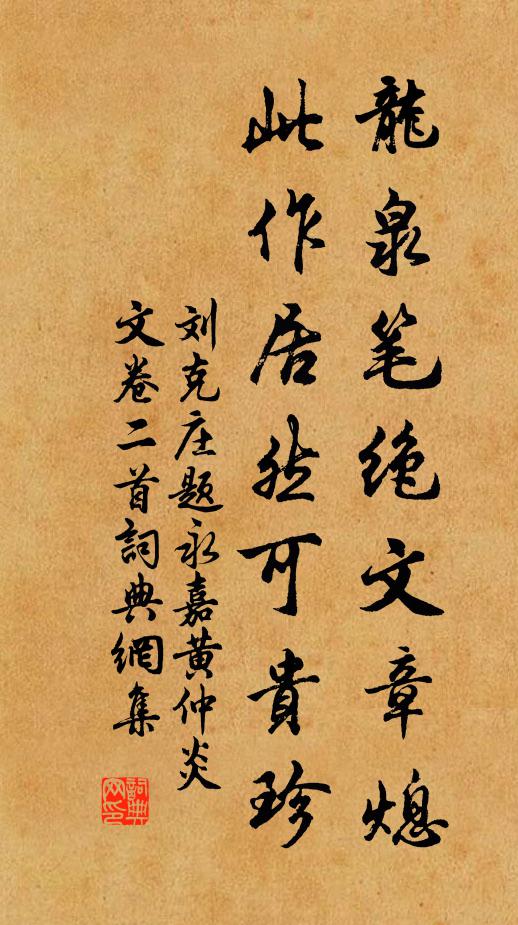 龍泉笔绝文章熄
此作居然可貴珍
刘克庄题永嘉黄仲炎
文卷二首詞典網集
詞典网印